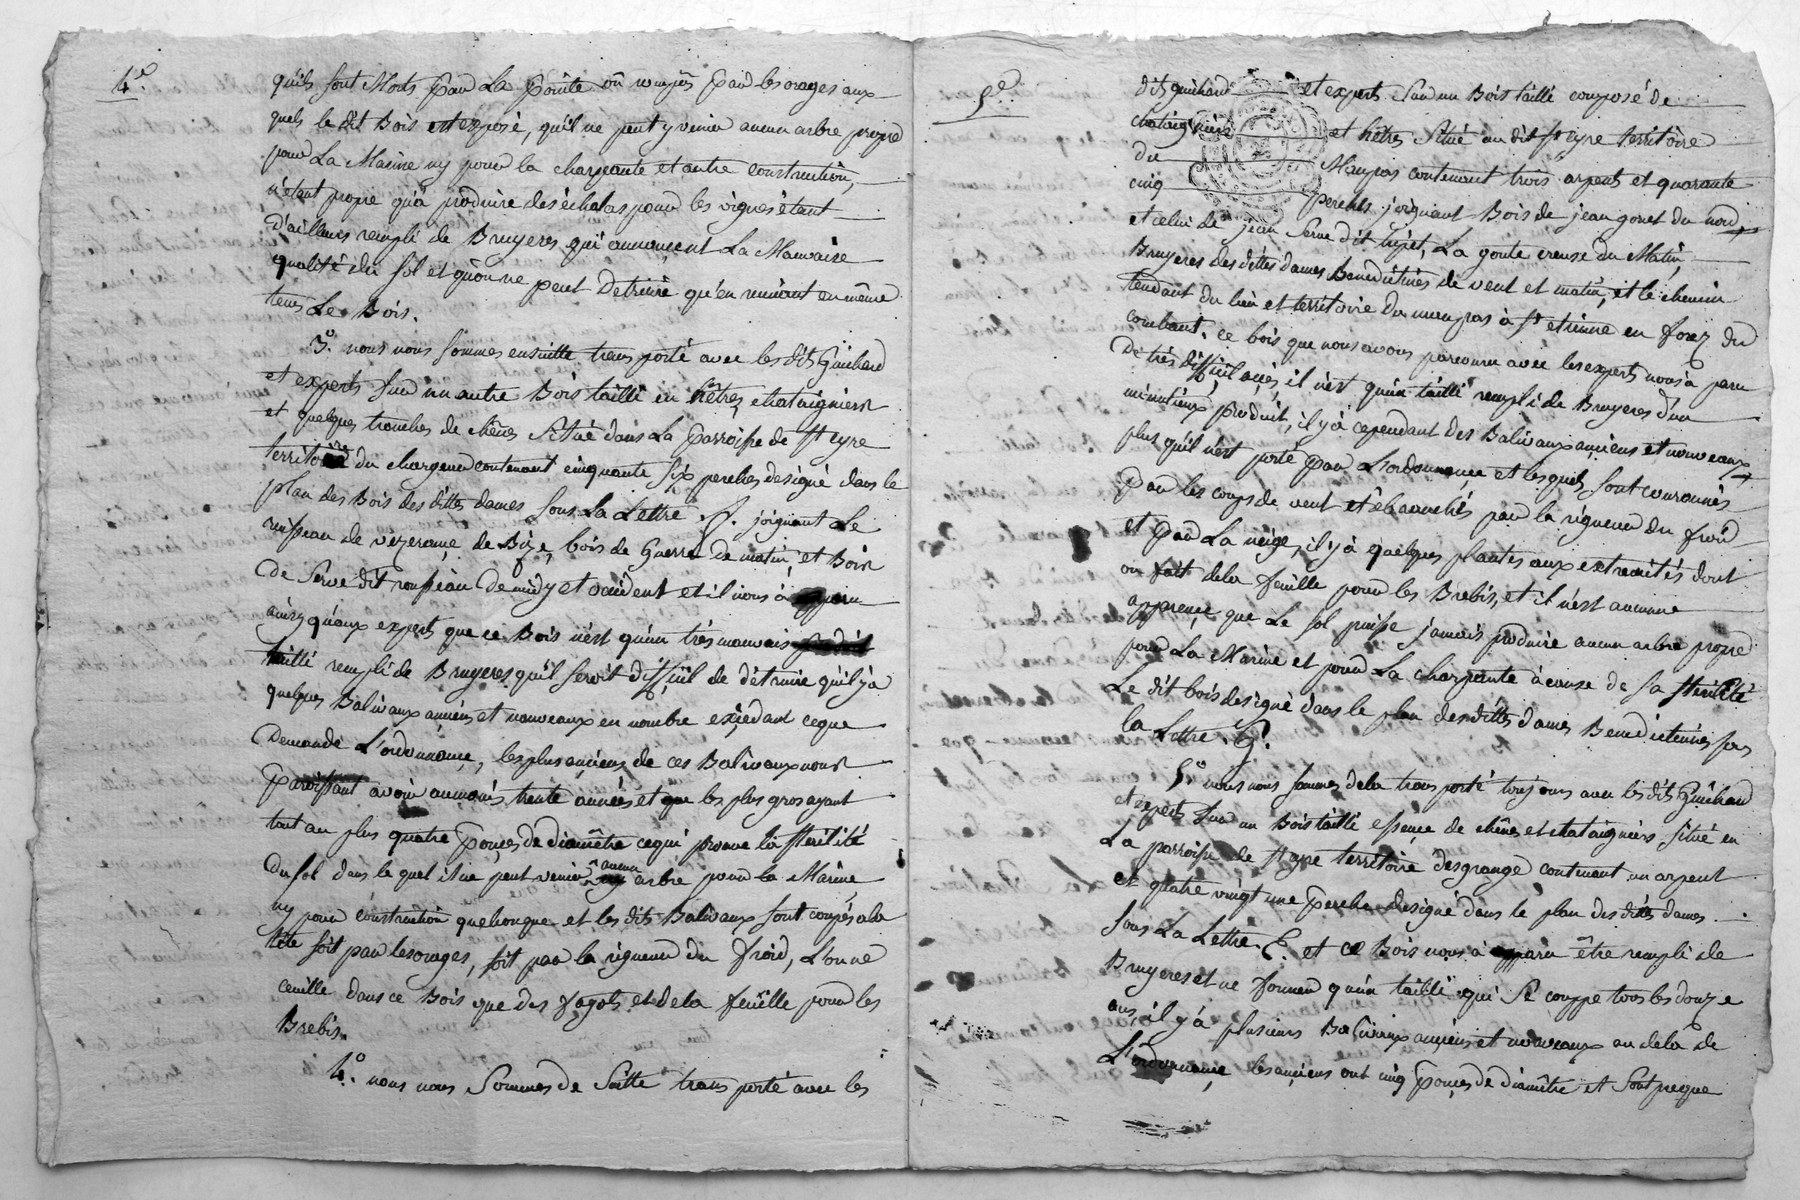 4e.
qu'ils sont Morts par La Pointe ou rompûs par les orages aux
quels le dit Bois est exposé, qu'il ne peut y venir aucun arbre propre
pour La Marine ny pour la charpante et autre construction,
n'etant propre qu'à produire des échalas pour les vignes étant
D'ailleurs rempli de Bruyeres qui annonçent La Mauvaise
qualité du sol et qu'on ne peut Detruire qu'en ruinant en même
tems Le Bois.
3°. nous nous sommes ensuitte transporté avec les dits Guichard
et experts sur un autre Bois taillé en hêtres, chataigniers
et quelques tronches de chênes situé dans La Parroisse de St cyre
territoire du chargeur contenant cinquante six perches designé dans le
plan des Bois des dittes dames sous La Lettre . f. joignant Le
ruisseau de vezerance de Bize, bois de Guerre de matin, et Bois
De Serve dit rousseau de midy et occident et il nous à apparu
ainsy qu'aux experts que ce Bois n'est qu'un trés mauvais
taillé rempli de Bruyeres qu'il seroit difficil de détruire qu'il y'a
quelques Balivaux anciens et nouveaux en nombre excedant ce que
Demande L'ordonnance, les plus anciens de ces Balivaux nous
Paroissant avoir au moins trente années et que les plus gros ayant
tout au plus quatre Pouces de diamêtre ce qui prouve la stérilité
Du sol dans le quel il ne peut venir aucun arbre pour la Marine
ny pour construction quelconque et les dits Balivaux sont coupés a la
tête soit par les orages, soit par la rigueur du froid, L'on ne
ceuille dans ce Bois que des fagots et de la feuille pour les
Brebis.
4°. nous nous Sommes de Suitte transporté avec les
5e.
dits guichard et experts sur un Bois taillé composé de
chataigniers et hêtres situé au dit St cyre territoire
du Mongros contenant trois arpents et quarante
cinq perches joignant Bois de jean gonet du nord,
et celui de jean Serve dit tripet, La goute creuse du Matin,
Bruyeres des dittes dames Benedictines de vent et matin, et le chemin
tendant du lieu et territoire du mongros à St etienne en forez du
couchant. ce bois que nous avons parcouru avec les experts nous à paru
De trés difficil accés, il n'est qu'un taillé rempli de Bruyeres d'un
minutieux produit, il y'à cependant des Balivaux anciens et nouveaux
plus qu'il n'est porté par L'ordonnance et lesquels sont couronnés
Par les coups de vent et ébranchés par la rigueur du froid
et par La neige, il y'à quelques plantes aux extremités dont
on fait de la feuille pour les Brebis, et il n'est aucune
apprence que Le sol puisse jamais produire aucun arbre propre
pour La Marine et pour La charpante à cause de sa stérilité
Le dit bois designé dans le plan des dittes dames Benedictines sous
la Lettre . G.
5° nous nous sommes de la transporté toujours avec les dits Guichard
et experts sur un Bois taillé essence de chênes et chataigniers situé en
La parroisse de St cyre territoire des grange contenant un arpent
et quatre vingt une Perche designé dans le plan des dittes dames
sous La Lettre. E. et ce Bois nous à apparu être rempli de
Bruyeres et ne former qu'un taillé qui se couppe tous les douze
ans, il y'a plusieurs Balivaux anciens et nouveaux au dela de
L'ordonnance les anciens ont cinq Pouces de diamêtre et sont presque